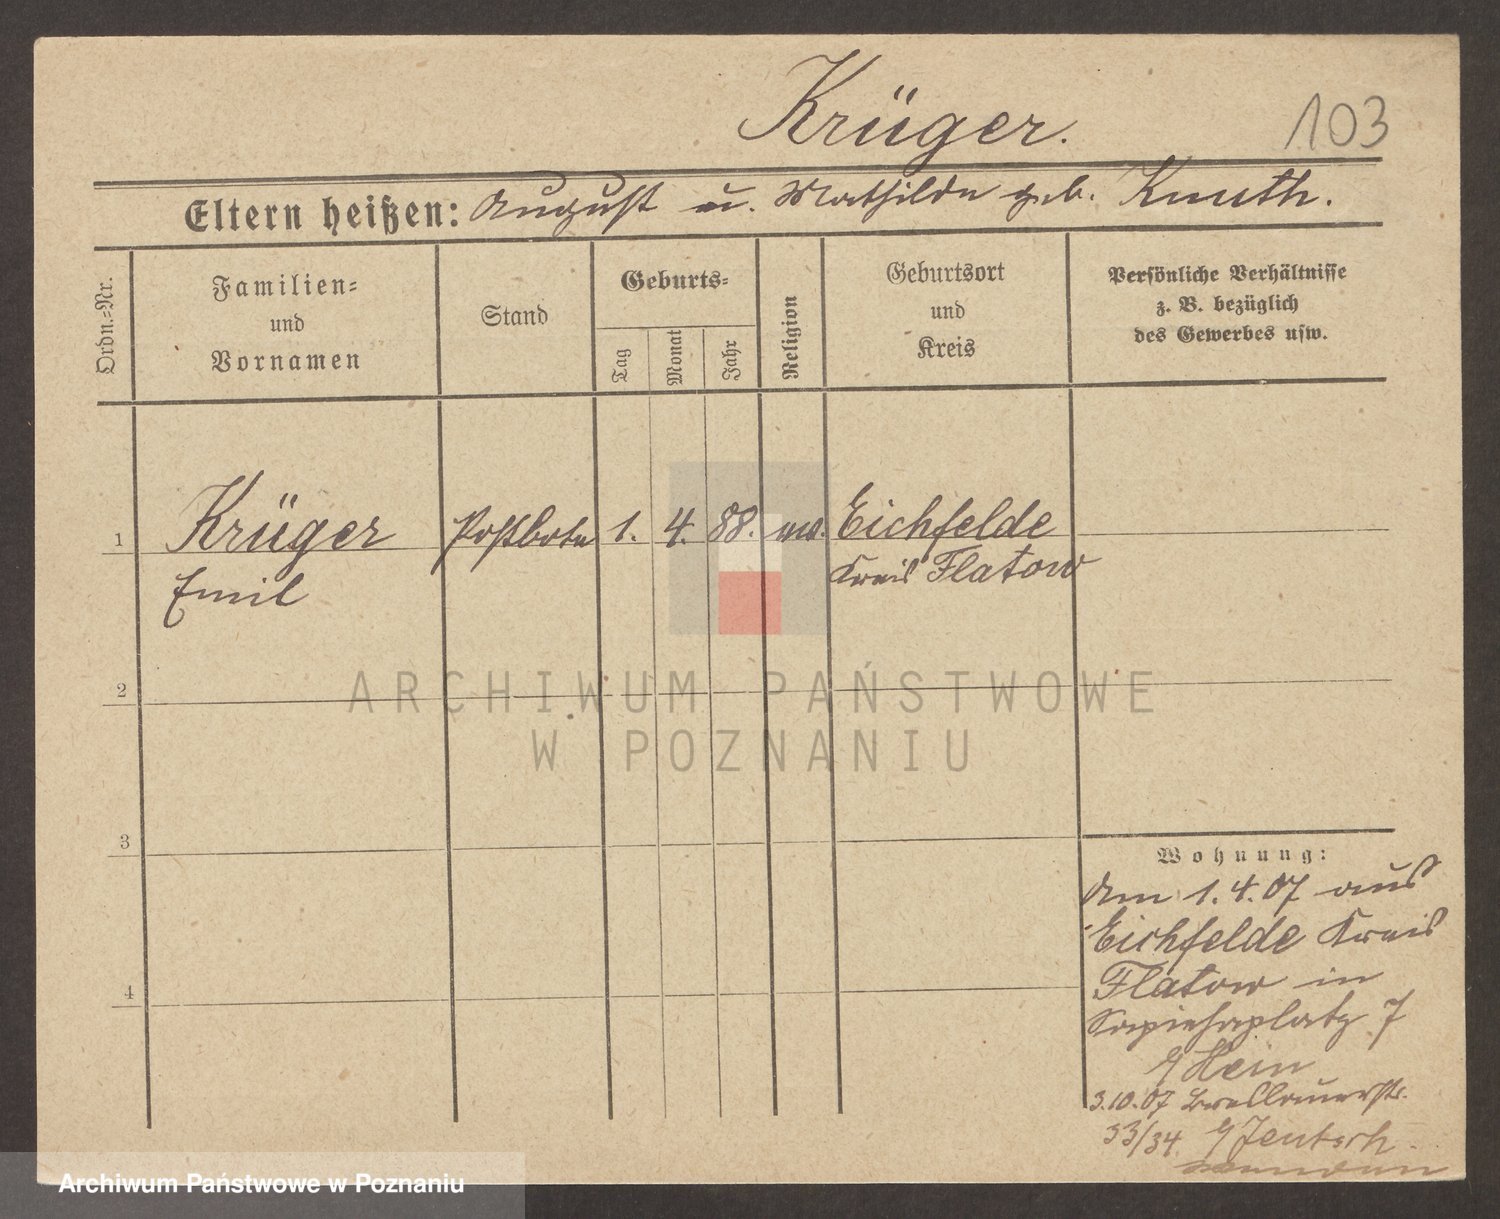 Krüger.
103
Eltern heißen: August u. Mathilde geb. Knuth.
Ordn.-Nr.
Familien-
und
Vornamen
Stand
Geburts-
Tag
Monat
Jahr
Religion
Geburtsort
und
Kreis
Persönliche Verhältnisse
z. B. bezüglich
des Gewerbes usw.
1
Krüger
Emil
Postbote
1.
4.
88.
ev.
Eichfelde
Kreis Flatow
2
3
4
Wohnung:
Am 1.4.07 aus
Eichfelde Kreis
Flatow in
Sapiehaplatz 7
b/ Hein
3.10.07 Breslauerstr.
33/34 b/ Jentsch
ARCHIWUM PAŃSTWOWE
W POZNANIU
Archiwum Państwowe w Poznaniu